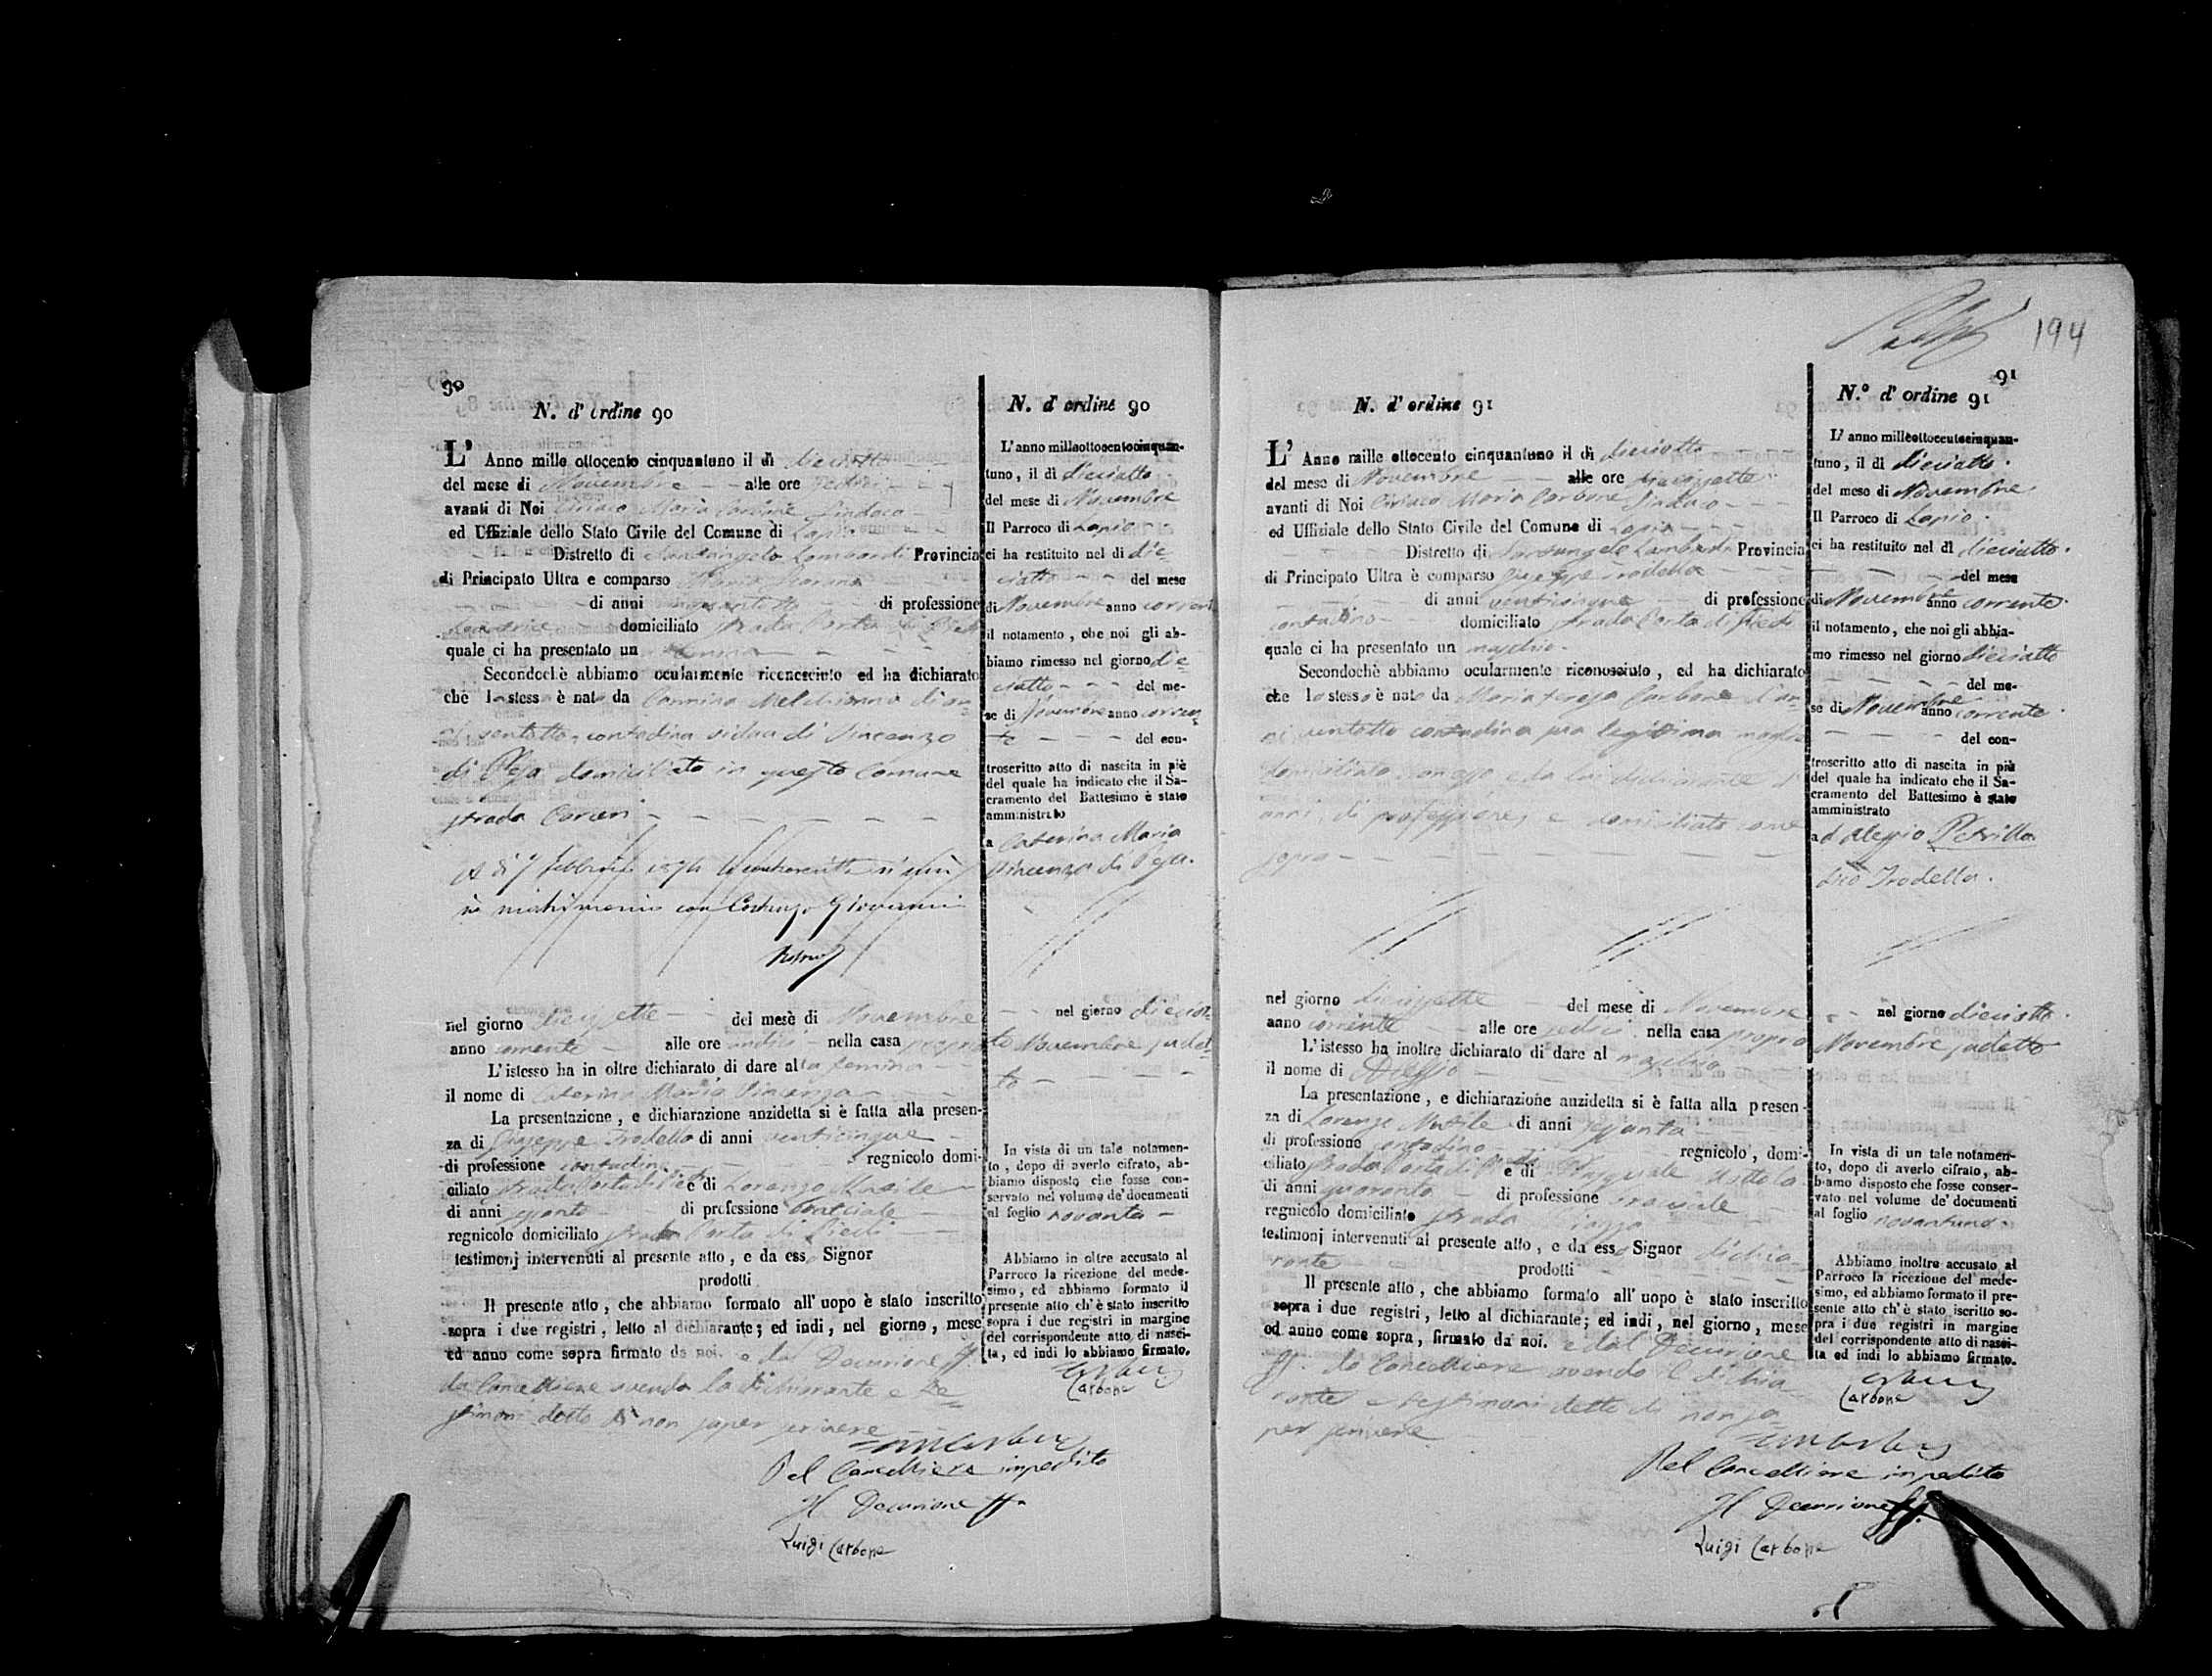 90
N. d' ordine 90
L' Anno mille ottocento cinquantuno il dì dieciotto
del mese di Novembre alle ore
avanti di Noi Ciriaco Maria Carbone Sindaco
ed Uffiziale dello Stato Civile del Comune di Lapio
Distretto di Santangelo Lombardi Provincia
di Principato Ultra e comparso
di anni di professione
domiciliato strada Porta di Piedi
quale ci ha presentato un
Secondochè abbiamo ocularmente riconosciuto ed ha dichiarato
che lo stess è nato da Carmina Melchionna di an-
ni ventotto, contadina vidua di Vincenzo
di Pesa domiciliata in questo Comune
strada Carceri
A dì 7 febbraio la controscritta si unì
in matrimonio con Giovanni
nel giorno diecisette del mese di Novembre
anno corrente alle ore undici nella casa propria
L' istesso ha in oltre dichiarato di dare alla femina
il nome di Caterina Maria Vincenza
La presentazione, e dichiarazione anzidetta si è fatta alla presen-
za di Giuseppe Trodella di anni venticinque
di professione contadino regnicolo domi-
ciliato strada Porta di Piedi e di Lorenzo
di anni di professione
regnicolo domiciliato strada Porta di Piedi
testimonj intervenuti al presente atto, e da ess Signor
prodotti
Il presente atto, che abbiamo formato all' uopo è stato inscritto
sopra i due registri, letto al dichiarante; ed indi, nel giorno, mese
ed anno come sopra firmato da noi. e dal Decurione ff.
da Cancelliere avendo la dichiarante e te-
stimoni detto di non saper scrivere
Pel Cancelliere impedito
Il Decurione ff.
Luigi Carbone
N. d' ordine 90
L' anno milleottocentocinquan-
tuno, il dì dieciotto
del mese di Novembre
Il Parroco di Lapio
ci ha restituito nel dì die-
ciotto del mese
di Novembre anno corrent
il notamento, che noi gli ab-
biamo rimesso nel giorno die-
ciotto del me-
se di Novembre anno corren-
te del con-
troscritto atto di nascita in piè
del quale ha indicato che il Sa-
cramento del Battesimo è stato
amministrato
a Caterina Maria
Vincenza di Pesa.
nel giorno dieciot-
to Novembre sudet-
to
In vista di un tale notamen-
to, dopo di averlo cifrato, ab-
biamo disposto che fosse con-
servato nel volume de' documenti
al foglio novanta
Abbiamo in oltre accusato al
Parroco la ricezione del mede-
simo, ed abbiamo formato il
presente atto ch' è stato inscritto
sopra i due registri in margine
del corrispondente atto di nasci-
ta, ed indi lo abbiamo firmato.
Carbone
194
91
N. d' ordine 91
L' Anno mille ottocento cinquantuno il dì dieciotto
del mese di Novembre alle ore diecisette
avanti di Noi Ciriaco Maria Carbone Sindaco
ed Uffiziale dello Stato Civile del Comune di Lapio
Distretto di Santangelo Lombardi Provincia
di Principato Ultra è comparso Giuseppe Trodella
di anni venticinque di professione
contadino domiciliato strada Porta di Piedi
quale ci ha presentato un maschio.
Secondochè abbiamo ocularmente riconosciuto, ed ha dichiarato
che lo stesso è nato da Maria Teresa Carbone d'an-
ni ventotto contadina sua legittima moglie
domiciliata con esso e da lui dichiarante d'
anni, di professione, e domiciliato come
sopra
nel giorno diecisette del mese di Novembre
anno corrente alle ore sedici nella casa propria
L' istesso ha inoltre dichiarato di dare al maschio
il nome di Alessio
La presentazione, e dichiarazione anzidetta si è fatta alla presen-
za di Lorenzo di anni
di professione contadino regnicolo, domi-
ciliato strada Porta di Piedi e di Pasquale
di anni quaranta di professione
regnicolo domiciliato strada Piazza
testimonj intervenuti al presente atto, e da esso Signor dichia-
rante
prodotti
Il presente atto, che abbiamo formato all' uopo è stato inscritto
sopra i due registri, letto al dichiarante; ed indi, nel giorno, mese
ed anno come sopra, firmato da noi. e dal Decurione
ff. da Cancelliere avendo il dichia-
rante e testimoni detto di non sa-
per scrivere
Pel Cancelliere impedito
Il Decurione ff.
Luigi Carbone
N.° d' ordine 91
L' anno milleottocentocinquan-
tuno, il dì dieciotto.
del mese di Novembre
Il Parroco di Lapio.
ci ha restituito nel dì dieciotto.
del mese
di Novembre anno corrente.
il notamento, che noi gli abbia-
mo rimesso nel giorno dieciotto
del me-
se di Novembre anno corrente.
del con-
troscritto atto di nascita in piè
del quale ha indicato che il Sa-
cramento del Battesimo è stato
amministrato
ad Alessio Petrillo
Trodella.
nel giorno dieciotto.
Novembre sudetto
In vista di un tale notamen-
to, dopo di averlo cifrato, ab-
biamo disposto che fosse conser-
vato nel volume de' documenti
al foglio novantuno.
Abbiamo inoltre accusato al
Parroco la ricezione del mede-
simo, ed abbiamo formato il pre-
sente atto ch' è stato iscritto so-
pra i due registri in margine
del corrispondente atto di nasci-
ta ed indi lo abbiamo firmato.
Carbone